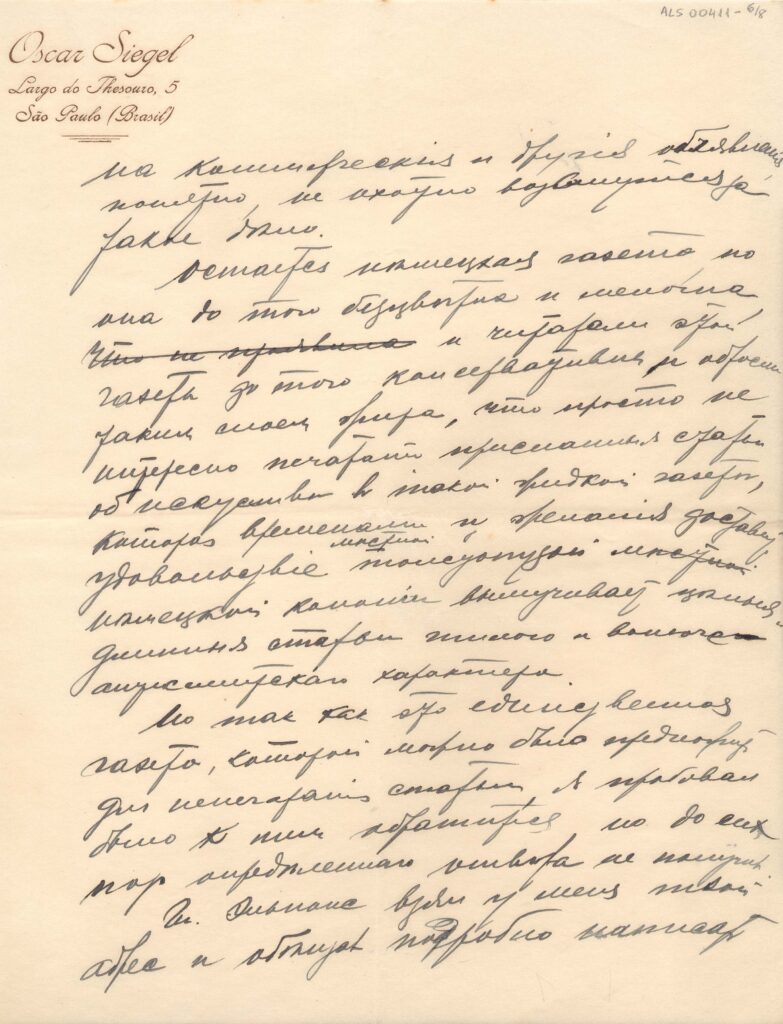 ALS 00411 - 6/8
Oscar Siegel
Largo do Thesouro, 5
São Paulo (Brasil)
на коммерческия и другия объявления
понятно, не охотно возьмутся за
такое дело.
Остается нѣмецкая газета но
она до того безцвѣтна и мелочна,
что не и читатели этой
газеты до того консервативны и обросли
таким слоем жира, что просто не
интересно печатать присланныя статьи
об искусстве в такой жидкой газете,
которая временами из желания доставить
удовольствіе мѣстной толстопузой мѣстной
нѣмецкой колоніи вымучивает цѣлыя
длинныя статьи гнилого и
антисемитскаго характера.
Но так как это единственная
газета, которой можно было предложить
для печатаніе статьи, я пробовал
было к ним обратиться, но до сих
пор определеннаго ответа не получил
Гн. взял у меня твой
адрес и обѣщал подробно написать